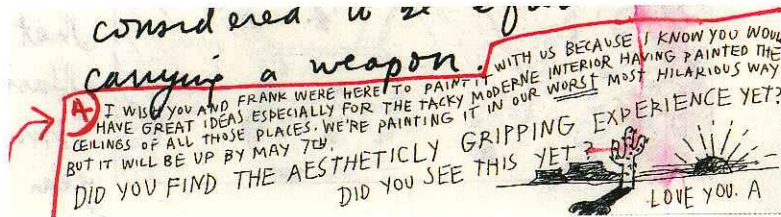 considered to be
carrying a weapon.
4 I WISH YOU AND FRANK WERE HERE TO PAINT IT WITH US BECAUSE I KNOW YOU WOUL
HAVE GREAT IDEAS ESPECIALLY FOR THE TACKY MODERNE INTERIOR HAVING PAINTED THE
CEILINGS OF ALL THOSE PLACES. WE'RE PAINTING IT IN OUR WORST MOST HILARIOUS WAY
BUT IT WILL BE UP BY MAY 7TH.
DID YOU FIND THE AESTHETICLY GRIPPING EXPERIENCE YET?
DID YOU SEE THIS YET?
LOVE YOU. A